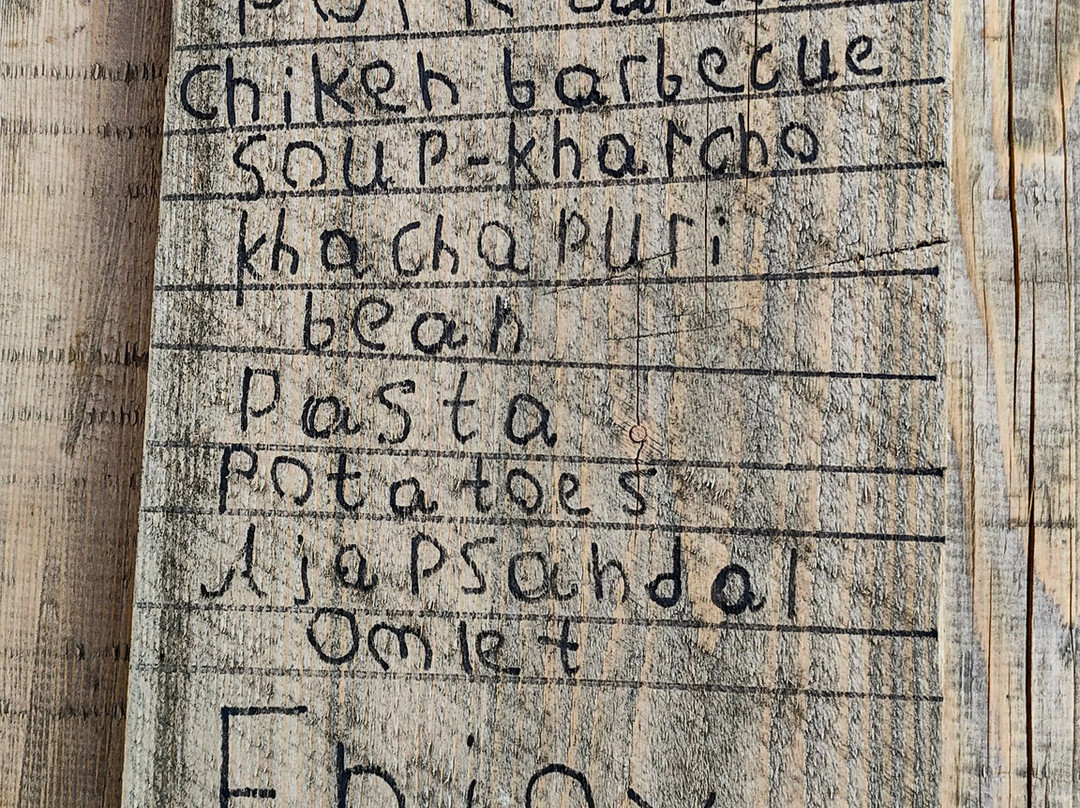 Chiken barbecue
soup-kharcho
khachapuri
bean
Pasta
potatoes
Ajapsandal
Omlet
Enjoy